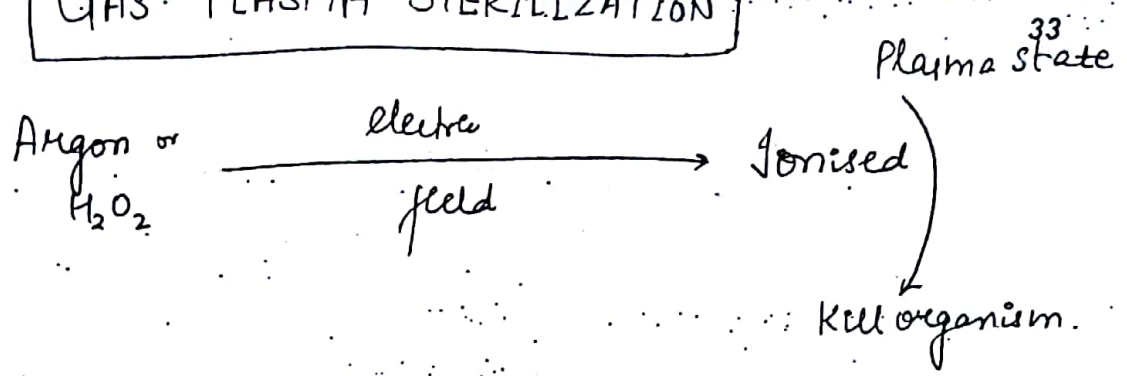 GAS PLASMA STERILIZATION
33
Plasma state
Argon or
H₂O₂
electric
field
Ionised
Kill organism.